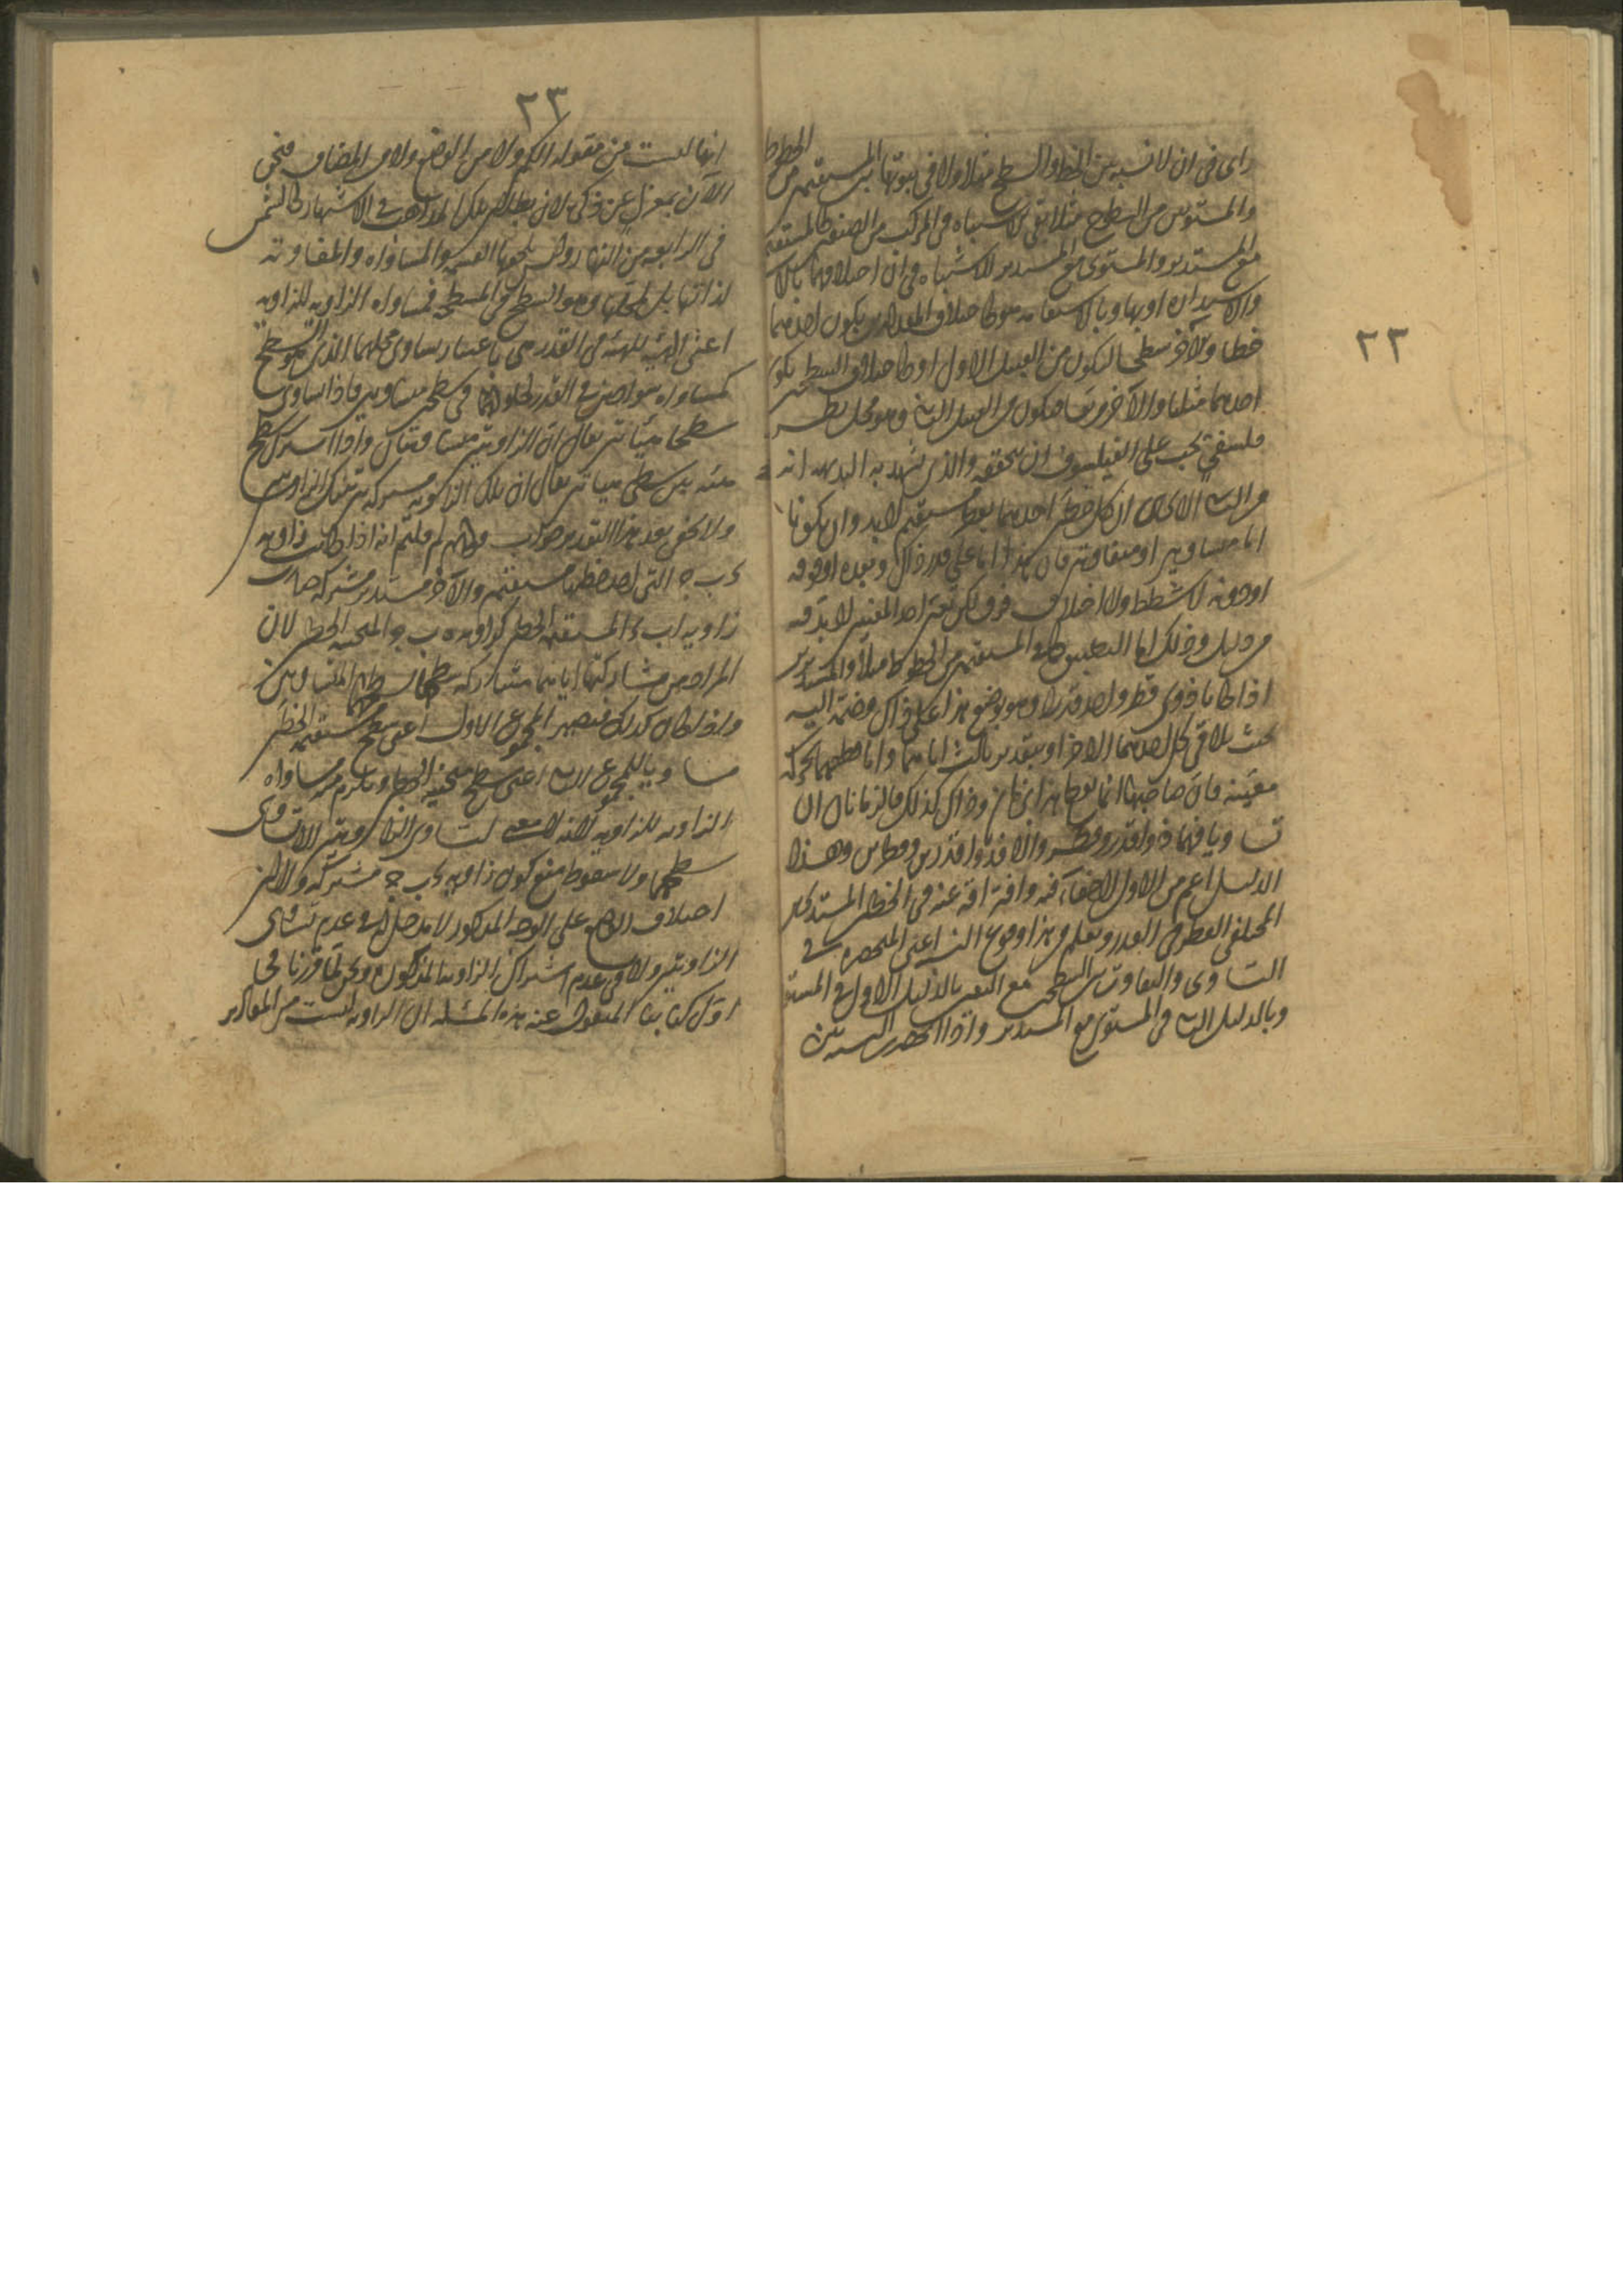 ٢٢
رای فی ان لا نسبة بین الخط والسطح مثلا ولا فی ثبوتها بین المستقیم من الخطوط
والمستوی من السطوح مثلا بقی الاشتباه فی المرکب من الصنفین کالمستقیم
مع المستدیر والمستوی مع المستدیر لاشتباه فی ان اختلافهما بالا
والاستدارة او بها وبالاستقامة هو کاختلاف المقدارین یکون احدهما
خطا والآخر سطحا لیکون من القبیل الاول او کاختلاف السطحین یکون
احدهما مثلثا والآخر مربعا فیکون من القبیل الثانی وهو محل نظر
فلسفی یجب علی الفیلسوف ان یحققه والذی یشهد به البدیهة انه
من الثانی لان کل خطین احدهما مستقیم لابد وان یکونا
اما متساویین او متفاوتین فان هذا اما علی قدر ذاک او بعده او فوقه
او دونه لا شطط ولا اختلاف فیه لکن تعیین احد لابد فیه
من دلیل وذلک اما التطبیق کما فی المستقیم من الخطوط مثلا والمستدیر
اذا کانا ذوی قطر واحد قدرا وهو بوضع هذا علی ذاک وضمه الیه
بحیث یلاقی کل احدهما الآخر او بتقدیر ثالث ایاهما واما قطعهما بحرکة
معینة فان صاحبها انما یقطع هذا فی زمان وذاک کذلک فالزمانان ان
تساویا فهما ذوا قدر وقطر والا فذوا قدرین وقطرین وهذا
الدلیل اعم من الاول لاجتماعه فیه وافتراقه عنه فی الخطین المستدیرین
المختلفی القطر فی القدر ویعلم من هذا وقوع النسبة اعنی المنحصرة فی
التساوی والتفاوت بین السطحین مع التعیین بالدلیل الاول فی المستوی
وبالدلیل الثانی فی المستوی مع المستدیر واذا انحصر
٢٣
انها لیست من مقولة الکم ولا من الوضع ولا من المضاف فنحن
الآن بمعزل عن ذکره لان بطلان تلک المذاهب فی الاشتهار کالشمس
فی الرابعة من النهار ولیس یلحقها القسمة والمساواة والمفاوتة
لذاتها بل لمحلها وهو السطح فی المسطحة فمساواة الزاویة للزاویة
اعنی الهیئة للهیئة فی القدر هی باعتبار تساوی محلهما الذی هو السطح
کمساواة سوادین فی القدر لحلولهما فی سطحین متساویین فاذا تساوی
سطحا هیئاتین یقال ان الزاویتین متساویتان واذا اشترک سطح
هیئة بین سطحی هیئاتین یقال ان تلک الزاویة مشترکة بین تینک الزاویتین
ولا یخفی بعد هذا التقدیر جواب قولهم لم قلتم انه اذا کانت زاویة
ء ب ج التی احد خطیها مستقیم والآخر مستدیر مشترکة صارت
زاویة ا ب ء المستقیمة الخطین کزاویة ه ب ج المنحنیة الخطین لان
المراد من مشارکتها ایاهما مشارکة سطحها سطحیهما المتساویین
واذا کان کذلک فیصیر المجموع الاول اعنی سطح مستقیمة الخطین
مساویا للمجموع الثانی اعنی سطح منحنیة الخطین ویلزم منه مساواة
الزاویة للزاویة لانه لا معنی لتساوی الزاویتین الا تساوی
سطحهما ولا سقوط منع کون زاویة ء ب ج مشترکة ولا ان
اختلاف الاضلاع علی الوجه المذکور لا مدخل له فی عدم تساوی
الزاویتین ولا فی عدم اشتراک الزاویة المذکورة ونحن لما قررنا فی
اول کتابنا المنقول عنه هذه المسئلة ان الزاویة لیست من المقادیر